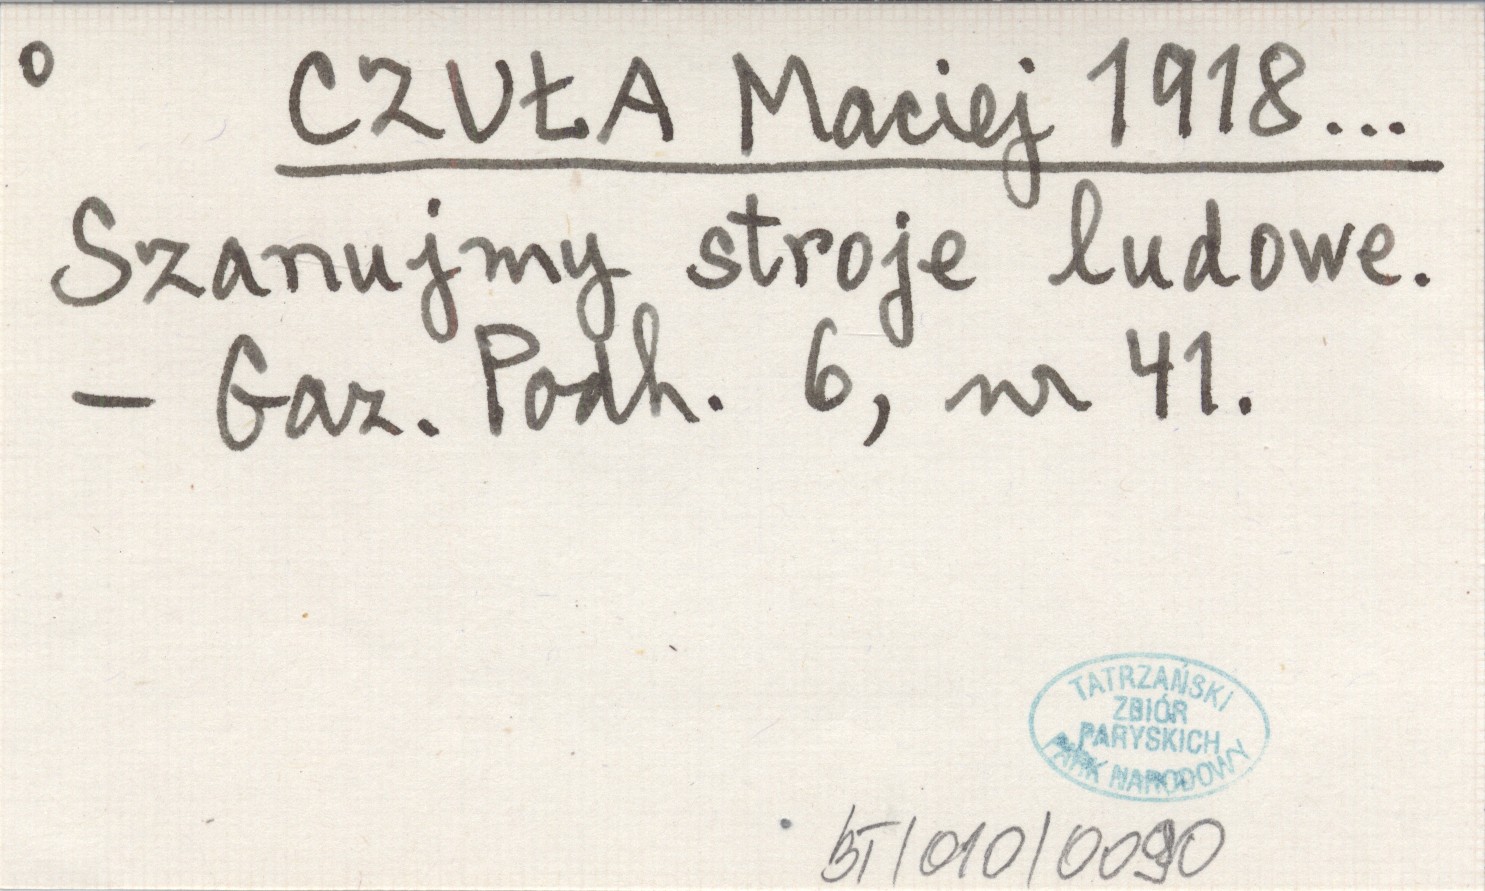 o CZUŁA Maciej 1918...
Szanujmy stroje ludowe.
– Gaz. Podh. 6, nr 41.
TATRZAŃSKI
ZBIÓR
PARYSKICH
PARK NARODOWY
BT/010/0090